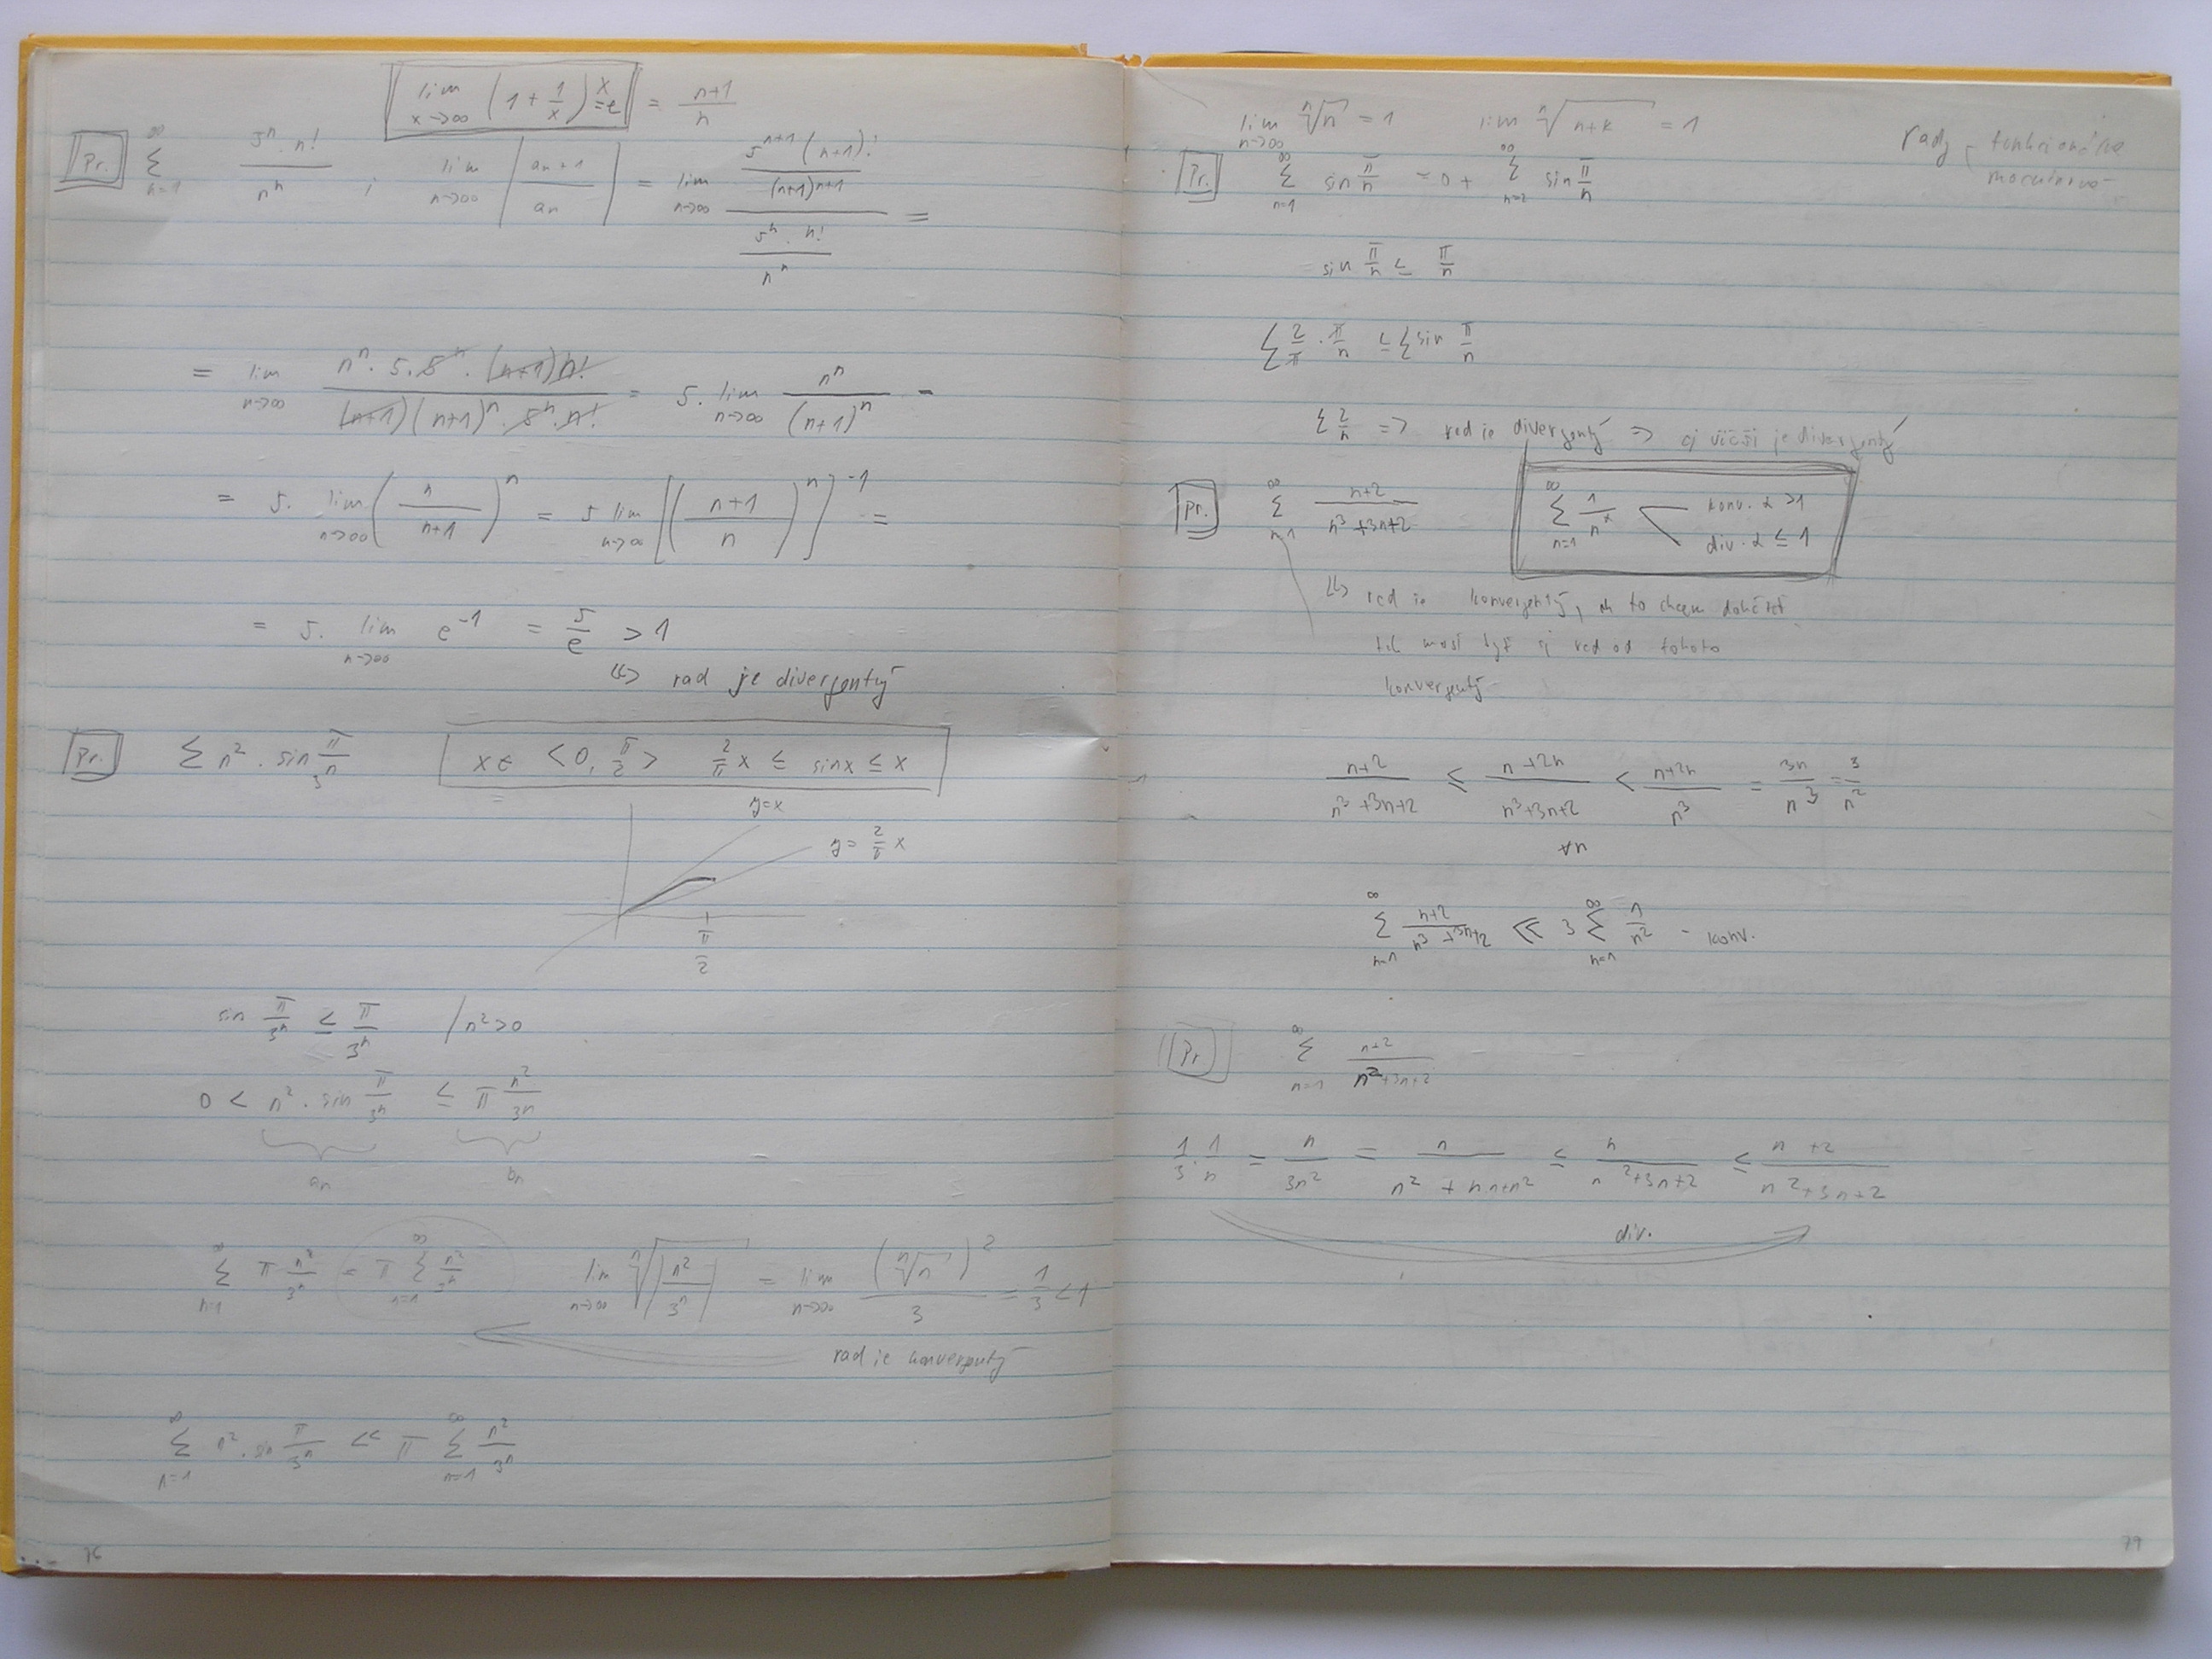 lim x->∞ (1 + 1/x)^x = e = n+1/n
Pr. ∞ Σ n=1 5^n . n! / n^n ; lim n->∞ | an+1 / an | = lim n->∞ 5^n+1 (n+1)! / (n+1)^n+1 / 5^n . n! / n^n =
= lim n->∞ n^n . 5 . 5^n . (n+1) n! / (n+1) (n+1)^n . 5^n . n! = 5 . lim n->∞ n^n / (n+1)^n =
= 5 . lim n->∞ ( n / n+1 )^n = 5 lim n->∞ [ ( n+1 / n )^n ]^-1 =
= 5 . lim n->∞ e^-1 = 5/e > 1
↳> rad je divergentý
Pr. Σ n² . sin π/3^n x ∈ <0, π/2> 2/π x ≤ sin x ≤ x
y=x
y = 2/π x
π/2
sin π/3^n ≤ π/3^n / n² > 0
0 < n² . sin π/3^n ≤ π n²/3^n
an bn
∞ Σ n=1 π n²/3^n = π ∞ Σ n=1 n²/3^n lim n->∞ ⁿ√| n²/3^n | = lim n->∞ (ⁿ√n)² / 3 = 1/3 < 1
rad je konvergentý
∞ Σ n=1 n² . sin π/3^n << π ∞ Σ n=1 n²/3^n
76
lim n->∞ ⁿ√n = 1 lim ⁿ√n+k = 1
rady funkcionálne
mocninové
Pr. ∞ Σ n=1 sin π/n = 0 + ∞ Σ n=2 sin π/n
sin π/n ≤ π/n
Σ 2/π . π/n ≤ Σ sin π/n
Σ 2/n => rad je divergentý => aj väčší je divergentý
Pr. ∞ Σ n=1 n+2 / n³+3n+2 ∞ Σ n=1 1/n^α konv. α > 1
div. α ≤ 1
↳> rad je konvergentý, to chcem
musí byť aj rad od tohoto
konvergentý
n+2 / n³+3n+2 ≤ n+2n / n³+3n+2 < n+2n / n³ = 3n / n³ = 3 / n²
∀n
∞ Σ n=1 n+2 / n³+3n+2 << 3 ∞ Σ n=1 1/n² - konv.
Pr ∞ Σ n=1 n+2 / n²+3n+2
1/3 . 1/n = n / 3n² = n / n² + n n+n² ≤ n / n²+3n+2 ≤ n +2 / n²+3n+2
div.